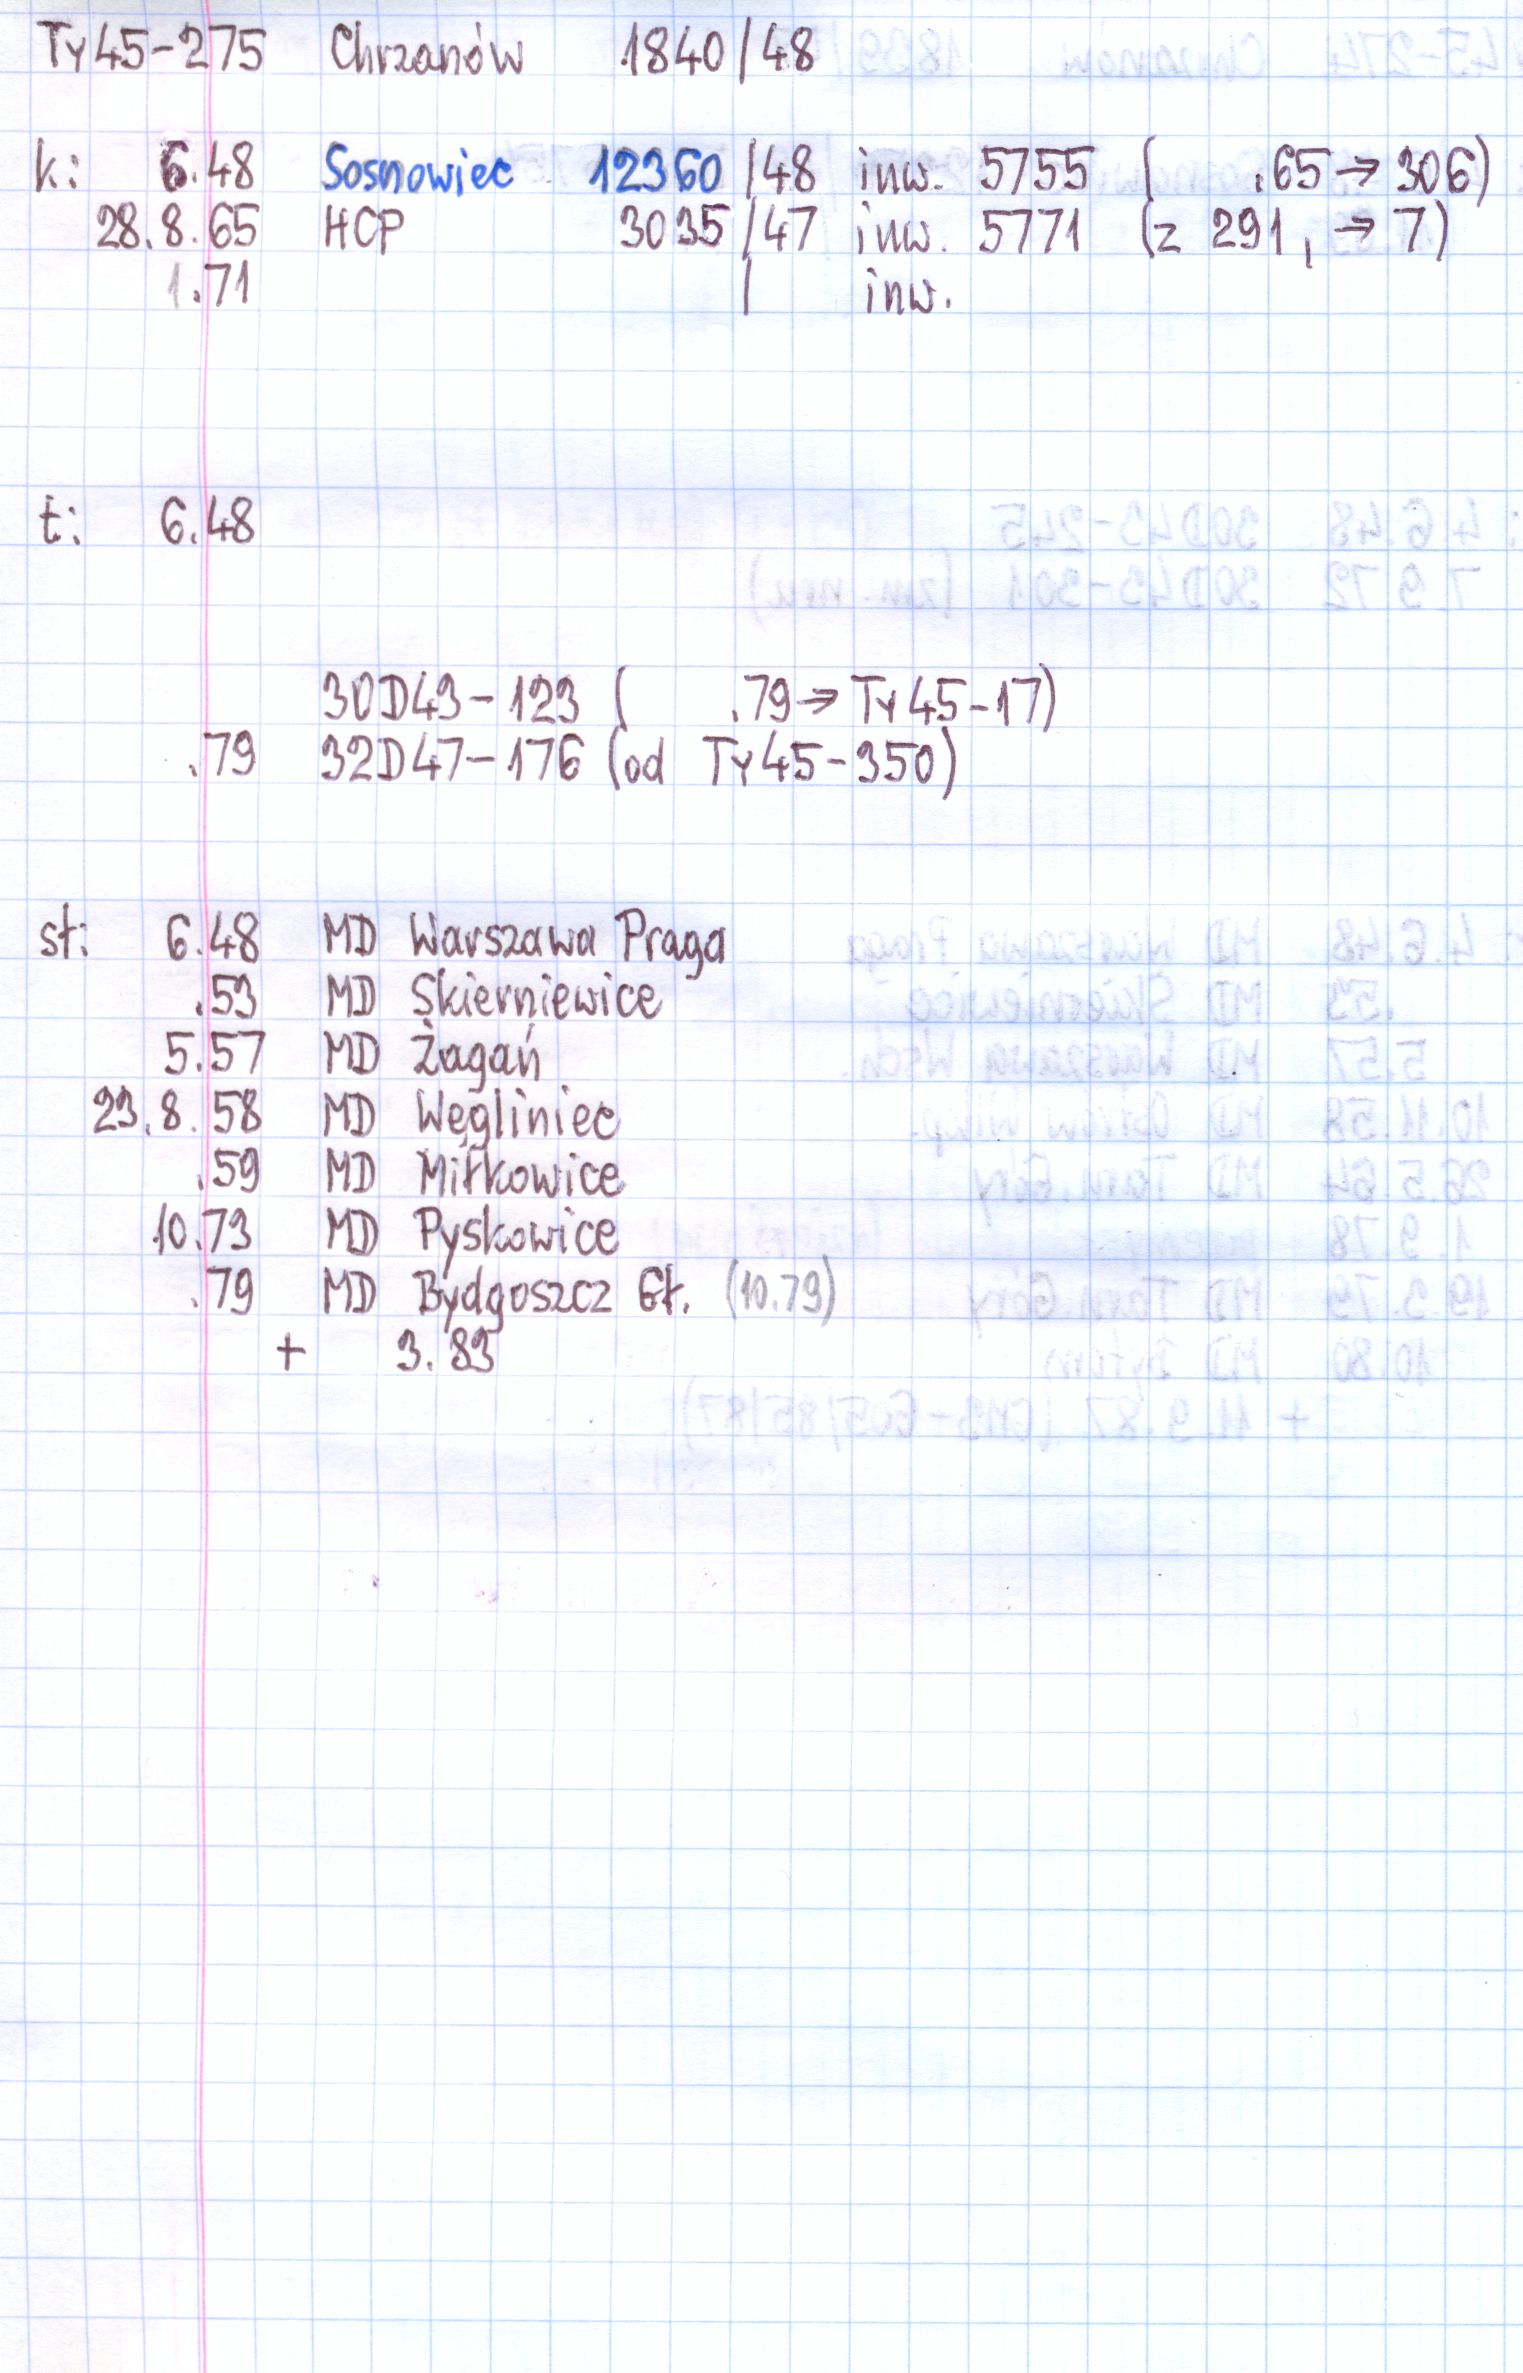 Ty45-275 Chrzanów 1840/48
k: 6.48 Sosnowiec 12360/48 inw. 5755 ( .65→306)
28.8.65 HCP 3035/47 inw. 5771 (z 291, →7)
1.71 / inw.
t: 6.48
30D43-123 ( .79→Ty45-17)
.79 32D47-176 (od Ty45-350)
st: 6.48 MD Warszawa Praga
.53 MD Skierniewice
5.57 MD Żagań
23.8.58 MD Węgliniec
.59 MD Miłkowice
10.73 MD Pyskowice
.79 MD Bydgoszcz Gł. (10.79)
+ 3.83